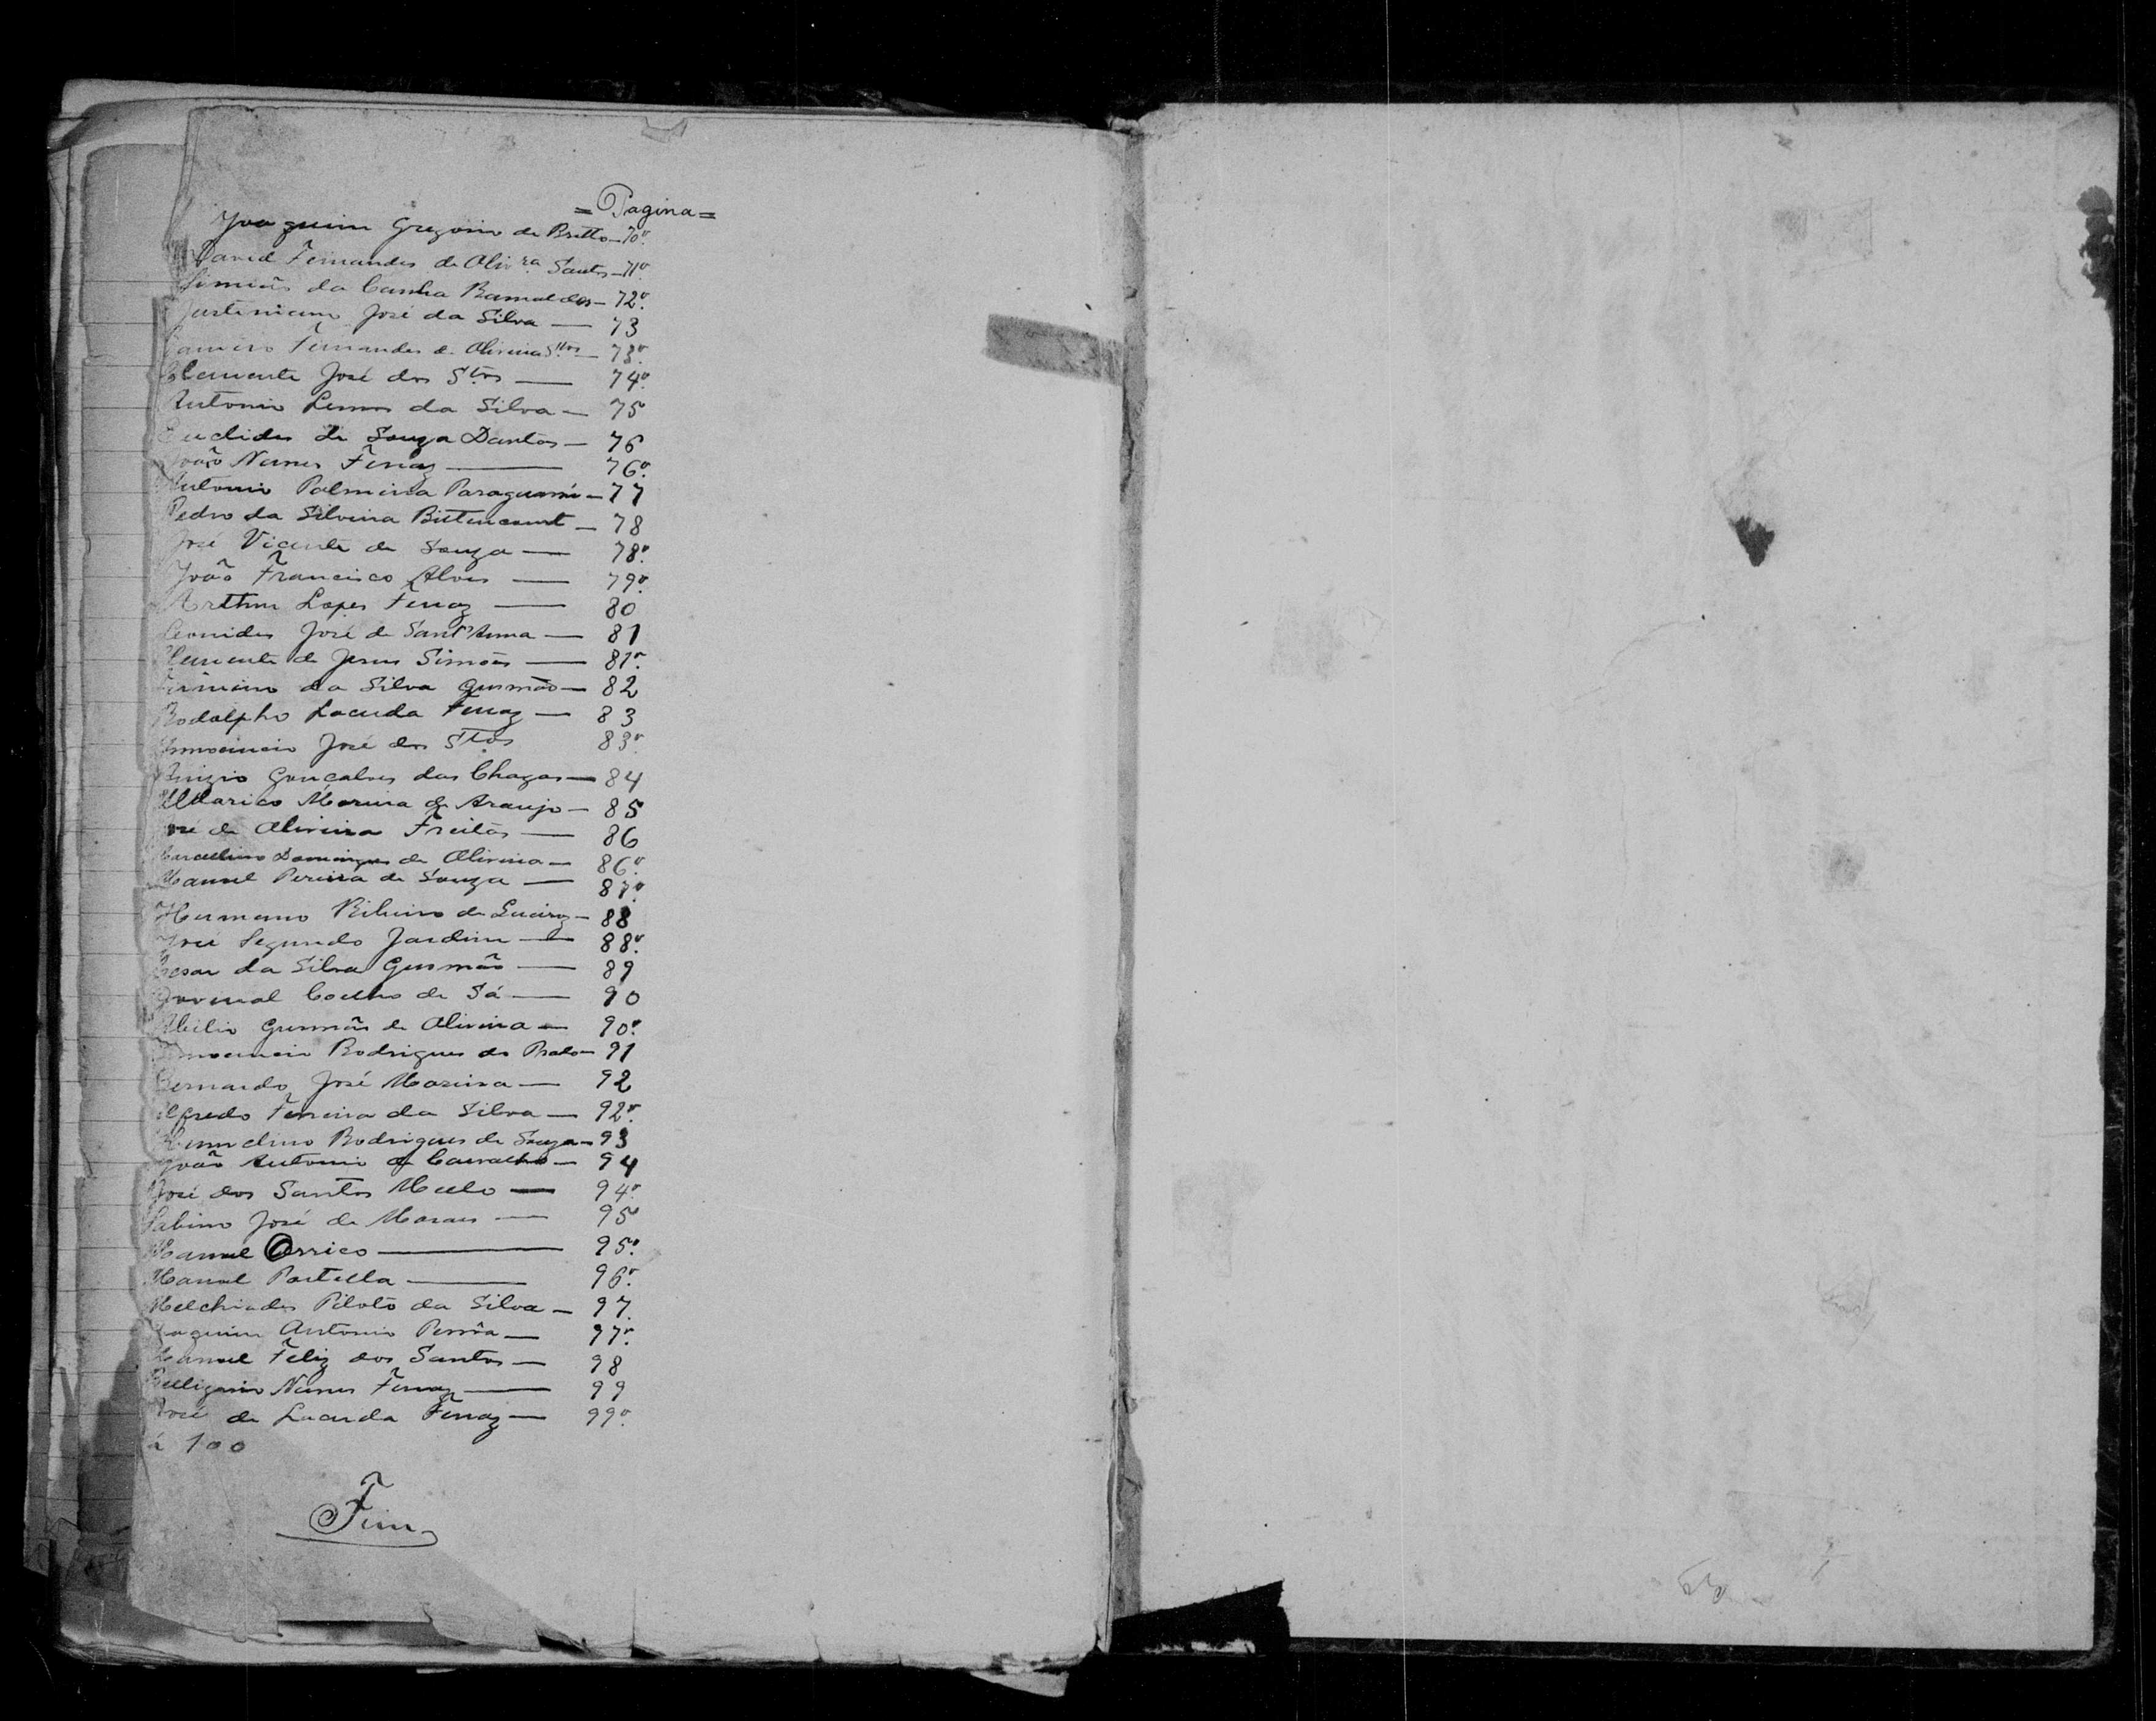 = Pagina =
Joaquim Gregorio de Britto — 70v.
David Fernandes de Olivra Santos — 71v.
Simião da Cunha — 72v.
Justiniano José da Silva — 73
Fernandes de Oliveira Stos — 73v.
Clemente José dos Stos — 74v.
Antonio Lemos da Silva — 75
Euclides de Souza Dantas — 76
João Nunes Ferraz — 76v.
Antonio Palmeira — 77
Pedro da Silveira Bittencourt — 78
José Vicente de Souza — 78v.
João Francisco Alves — 79v.
Arthur Lopes Ferraz — 80
Leonides José de Sant'Anna — 81
Clemente de Jesus Simões — 81v.
Firmino da Silva Gusmão — 82
Rodolpho Lacerda Ferraz — 83
Innocencio José dos Stos 83v.
Gonçalves das Chagas — 84
Alarico Moreira de Araujo — 85
José de Oliveira Freitas — 86
Marcellino Domingues de Oliveira — 86v.
Manuel Pereira de Souza — 87v.
Hermano Ribeiro de Queiroz — 88
José Segundo Jardim — 88v.
Cesar da Silva Gusmão — 89
Juvenal Coelho de Sá — 90
Abilio Gusmão de Oliveira — 90v.
Innocencio Rodrigues do Prado — 91
Bernardo José Moreira — 92
Alfredo Ferreira da Silva — 92v.
Rodrigues de Souza — 93
João Antonio de Carvalho — 94
José dos Santos Mello — 94v.
Sabino José de Moraes — 95
Manuel Orrico — 95v.
Manoel Portella — 96v.
Melchiades Piloto da Silva — 97
Joaquim Antonio — 97v.
Manuel Feliz dos Santos — 98
Belizario Nunes Ferraz — 99
José de Lacerda Ferraz — 99v.
á 100
Fim